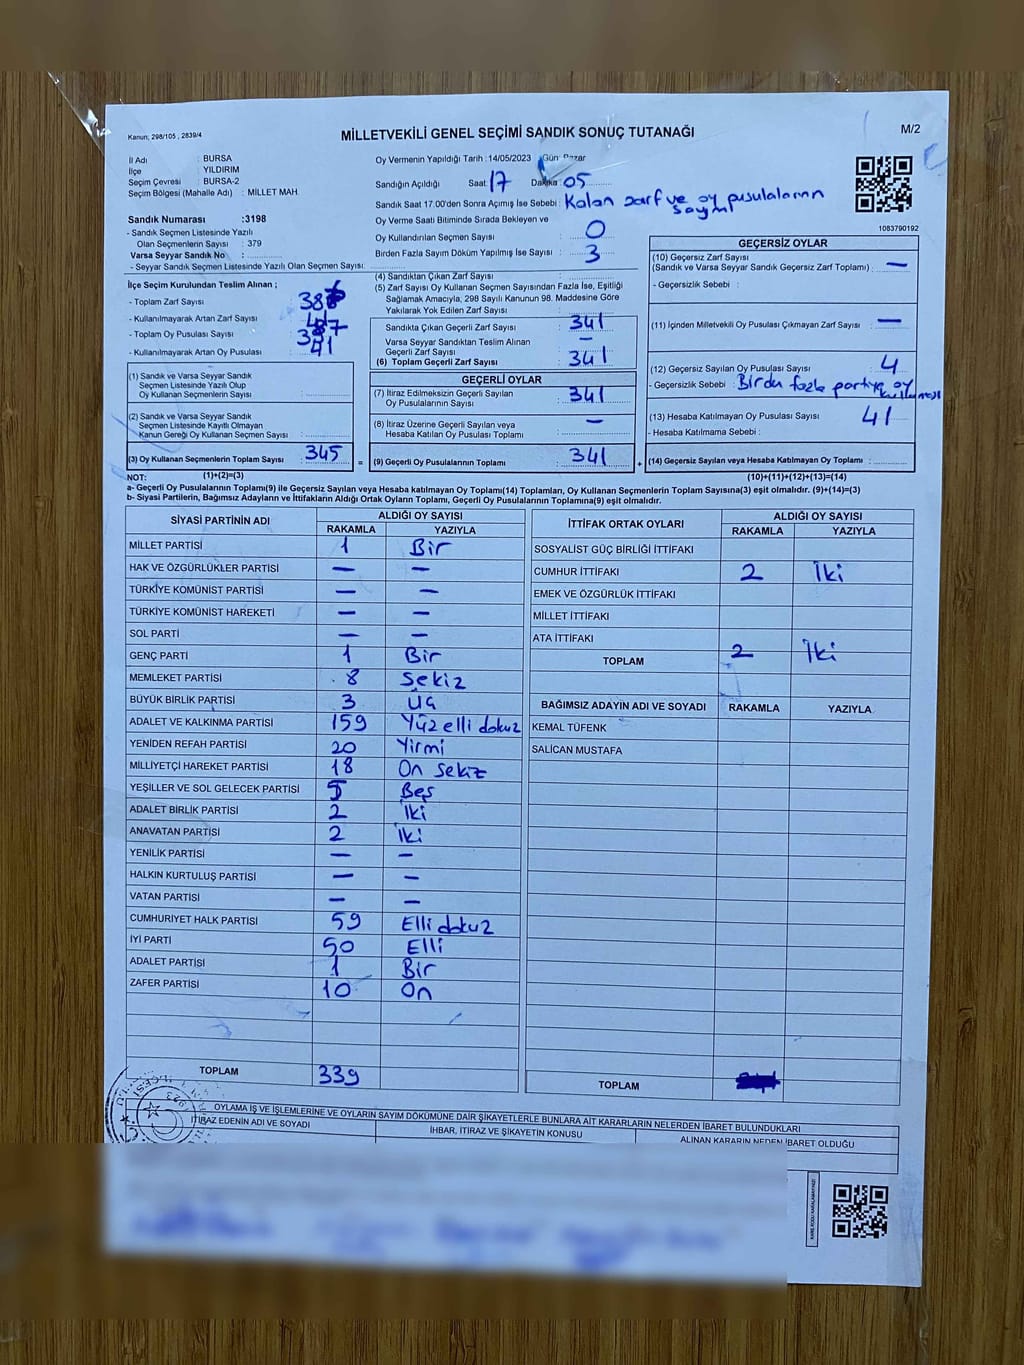 Kanun; 298/105 , 2839/4
MİLLETVEKİLİ GENEL SEÇİMİ SANDIK SONUÇ TUTANAĞI
M/2
İl Adı : BURSA
İlçe : YILDIRIM
Seçim Çevresi : BURSA-2
Seçim Bölgesi (Mahalle Adı) : MİLLET MAH.
Sandık Numarası :3198
- Sandık Seçmen Listesinde Yazılı
Olan Seçmenlerin Sayısı : 379
Varsa Seyyar Sandık No :
- Seyyar Sandık Seçmen Listesinde Yazılı Olan Seçmen Sayısı:
Oy Vermenin Yapıldığı Tarih : 14/05/2023 Gün: Pazar
Sandığın Açıldığı Saat: 17 Dakika: 05
Sandık Saat 17.00'den Sonra Açımış İse Sebebi: Kalan zarf ve oy pusulalarının
sayımı
Oy Verme Saati Bitiminde Sırada Bekleyen ve
Oy Kullandırılan Seçmen Sayısı : 0
Birden Fazla Sayım Döküm Yapılmış İse Sayısı : 3
1083790192
İlçe Seçim Kurulundan Teslim Alınan ;
- Toplam Zarf Sayısı :
- Kullanılmayarak Artan Zarf Sayısı :
- Toplam Oy Pusulası Sayısı :
- Kullanılmayarak Artan Oy Pusulası : 41
(1) Sandık ve Varsa Seyyar Sandık
Seçmen Listesinde Yazılı Olup
Oy Kullanan Seçmenlerin Sayısı :
(2) Sandık ve Varsa Seyyar Sandık
Seçmen Listesinde Kayıtlı Olmayan
Kanun Gereği Oy Kullanan Seçmen Sayısı :
(3) Oy Kullanan Seçmenlerin Toplam Sayısı : 345
(1)+(2)=(3)
(4) Sandıktan Çıkan Zarf Sayısı :
(5) Zarf Sayısı Oy Kullanan Seçmen Sayısından Fazla İse, Eşitliği
Sağlamak Amacıyla; 298 Sayılı Kanunun 98. Maddesine Göre
Yakılarak Yok Edilen Zarf Sayısı :
Sandıkta Çıkan Geçerli Zarf Sayısı : 341
Varsa Seyyar Sandıktan Teslim Alınan
Geçerli Zarf Sayısı : —
(6) Toplam Geçerli Zarf Sayısı : 341
GEÇERLİ OYLAR
(7) İtiraz Edilmeksizin Geçerli Sayılan
Oy Pusulalarının Sayısı : 341
(8) İtiraz Üzerine Geçerli Sayılan veya
Hesaba Katılan Oy Pusulası Toplamı : —
= (9) Geçerli Oy Pusulalarının Toplamı : 341
GEÇERSİZ OYLAR
(10) Geçersiz Zarf Sayısı
(Sandık ve Varsa Seyyar Sandık Geçersiz Zarf Toplamı) : —
- Geçersizlik Sebebi :
(11) İçinden Milletvekili Oy Pusulası Çıkmayan Zarf Sayısı : —
(12) Geçersiz Sayılan Oy Pusulası Sayısı : 4
- Geçersizlik Sebebi : Birden fazla partiye oy
kullanması
(13) Hesaba Katılmayan Oy Pusulası Sayısı : 41
- Hesaba Katılmama Sebebi :
+ (14) Geçersiz Sayılan veya Hesaba Katılmayan Oy Toplamı :
(10)+(11)+(12)+(13)=(14)
NOT:
a- Geçerli Oy Pusulalarının Toplamı(9) ile Geçersiz Sayılan veya Hesaba Katılmayan Oy Toplamı(14) Toplamları, Oy Kullanan Seçmenlerin Toplam Sayısına(3) eşit olmalıdır. (9)+(14)=(3)
b- Siyasi Partilerin, Bağımsız Adayların ve İttifakların Aldığı Ortak Oyların Toplamı, Geçerli Oy Pusulalarının Toplamına(9) eşit olmalıdır.
SİYASİ PARTİNİN ADI ALDIĞI OY SAYISI
RAKAMLA YAZIYLA
MİLLET PARTİSİ 1 Bir
HAK VE ÖZGÜRLÜKLER PARTİSİ — —
TÜRKİYE KOMÜNİST PARTİSİ — —
TÜRKİYE KOMÜNİST HAREKETİ — —
SOL PARTİ — —
GENÇ PARTİ 1 Bir
MEMLEKET PARTİSİ 8 Sekiz
BÜYÜK BİRLİK PARTİSİ 3 Üç
ADALET VE KALKINMA PARTİSİ 159 Yüz elli dokuz
YENİDEN REFAH PARTİSİ 20 Yirmi
MİLLİYETÇİ HAREKET PARTİSİ 18 On sekiz
YEŞİLLER VE SOL GELECEK PARTİSİ 5 Beş
ADALET BİRLİK PARTİSİ 2 İki
ANAVATAN PARTİSİ 2 İki
YENİLİK PARTİSİ — —
HALKIN KURTULUŞ PARTİSİ — —
VATAN PARTİSİ — —
CUMHURİYET HALK PARTİSİ 59 Elli dokuz
İYİ PARTİ 50 Elli
ADALET PARTİSİ 1 Bir
ZAFER PARTİSİ 10 On
TOPLAM 339
İTTİFAK ORTAK OYLARI ALDIĞI OY SAYISI
RAKAMLA YAZIYLA
SOSYALİST GÜÇ BİRLİĞİ İTTİFAKI
CUMHUR İTTİFAKI 2 İki
EMEK VE ÖZGÜRLÜK İTTİFAKI
MİLLET İTTİFAKI
ATA İTTİFAKI
TOPLAM 2 İki
BAĞIMSIZ ADAYIN ADI VE SOYADI RAKAMLA YAZIYLA
KEMAL TÜFENK
SALİCAN MUSTAFA
TOPLAM
OYLAMA İŞ VE İŞLEMLERİNE VE OYLARIN SAYIM DÖKÜMÜNE DAİR ŞİKAYETLERLE BUNLARA AİT KARARLARIN NELERDEN İBARET BULUNDUKLARI
İTİRAZ EDENİN ADI VE SOYADI
İHBAR, İTİRAZ VE ŞİKAYETİN KONUSU
ALINAN KARARIN NEDEN İBARET OLDUĞU